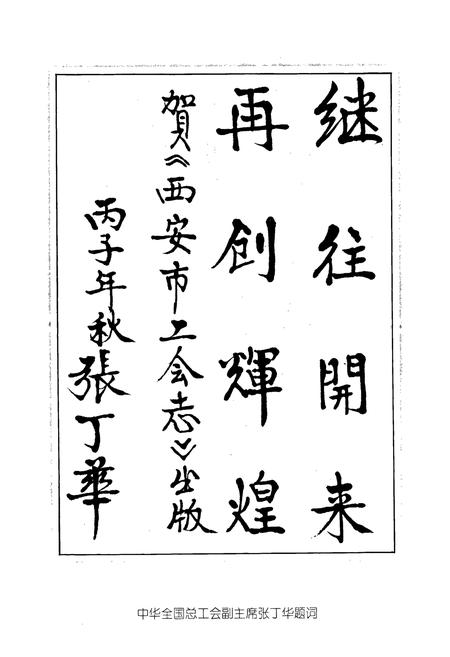 继往開来
再创輝煌
賀《西安市工会志》出版
丙子年秋張丁華
中华全国总工会副主席张丁华题词